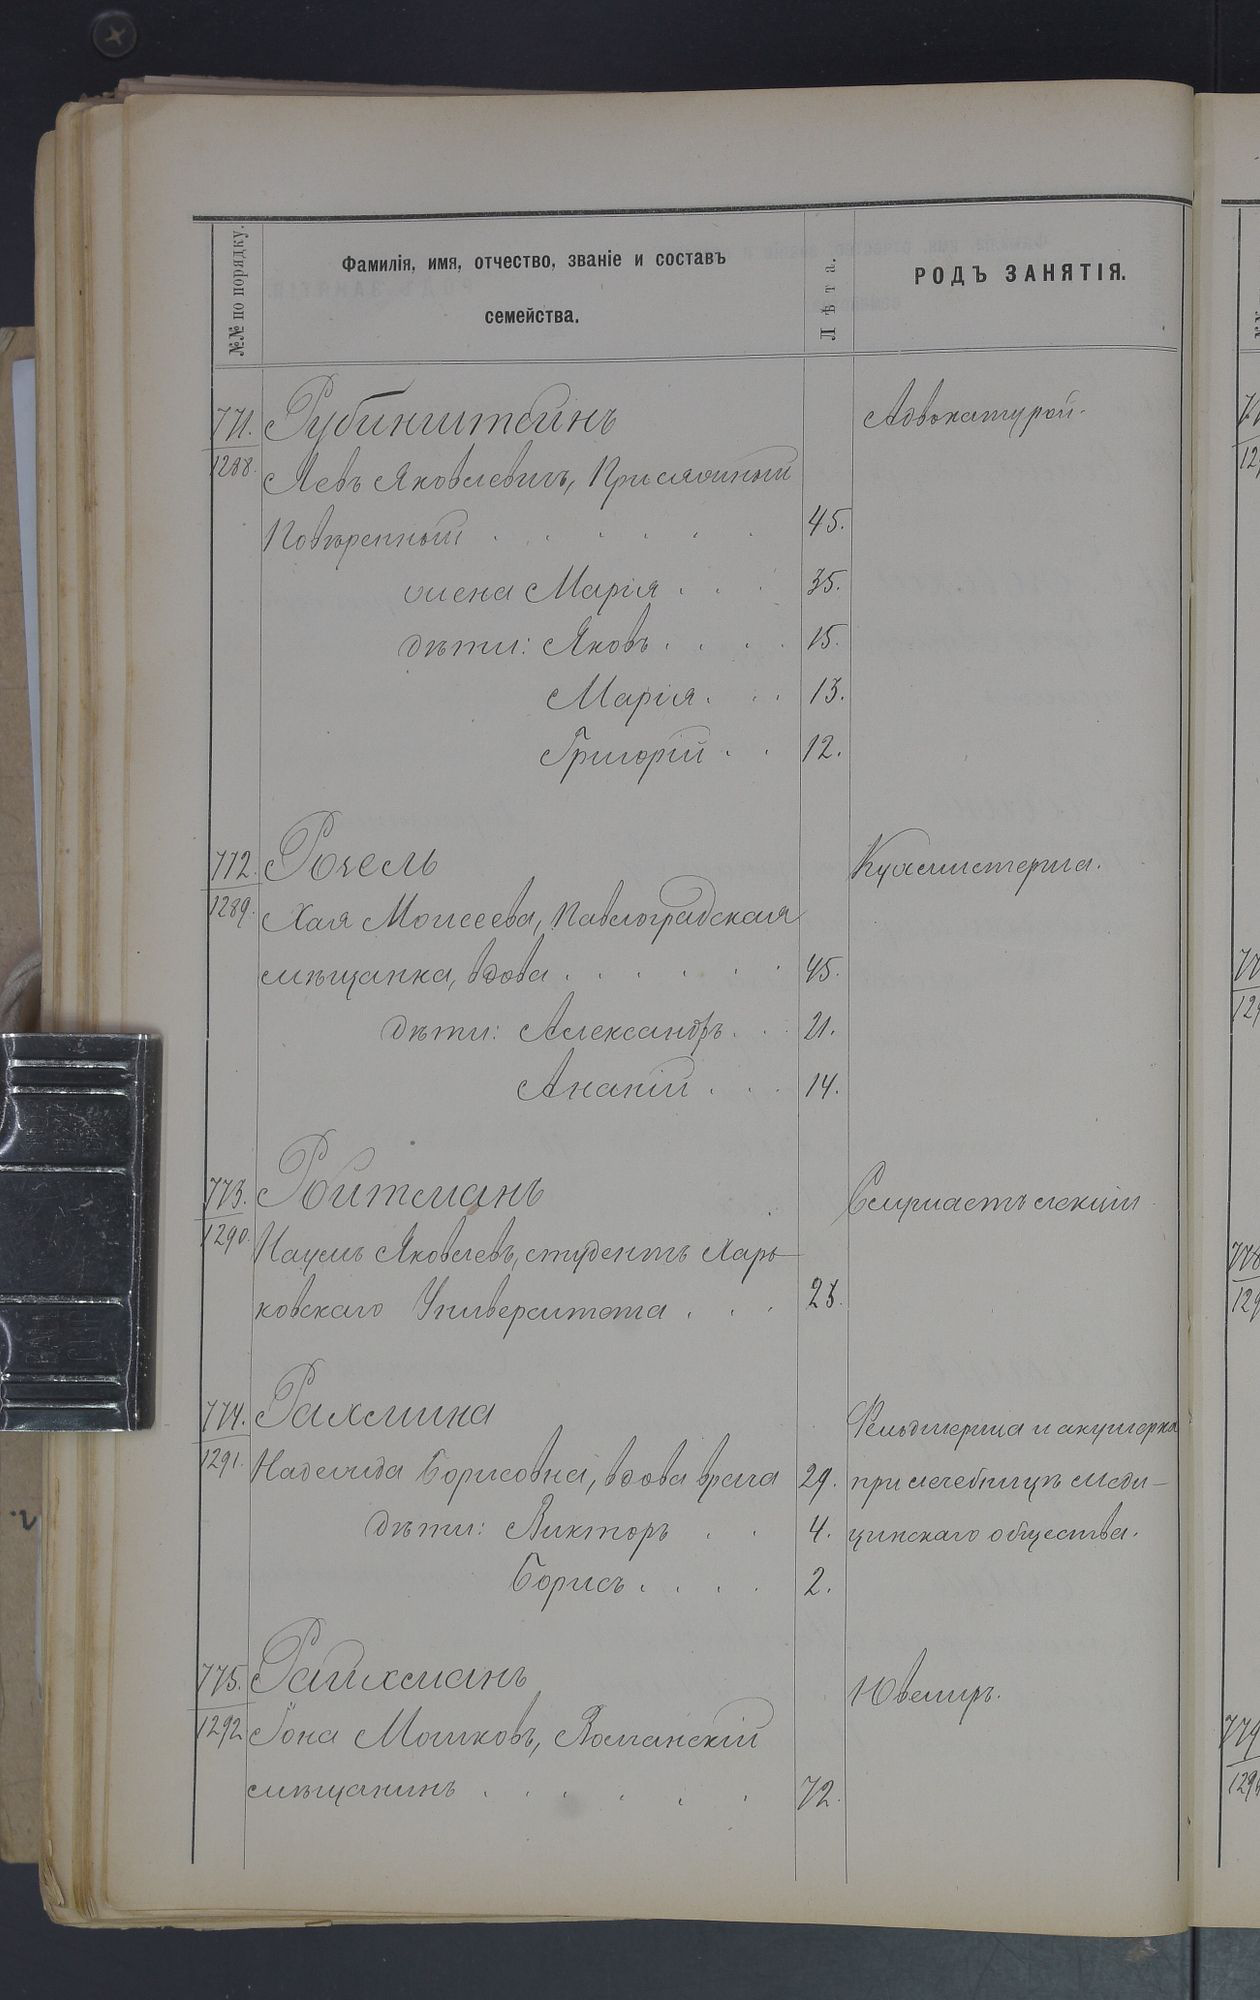 №№ по порядку.
Фамилія, имя, отчество, званіе и составъ
семейства.
Лѣта.
РОДЪ ЗАНЯТІЯ.
771. Рубинштейнъ Адвокатурой.
1288. Левъ Яковлевичъ, Присяжный
Повѣренный . . . . . . 45.
жена Марія . . . 35.
дѣти: Яковъ . . . . 15.
Марія . . . 13.
Григорій . . 12.
772. Рочель Кухмистерша.
1289. Хая Моисеева, Павлоградская
мѣщанка, вдова . . . . . . 45.
дѣти: Александръ . . 21.
Ананій . . . 14.
773. Ройтманъ
1290. Наумъ Яковлевъ, студентъ Харь-
ковскаго Университета . . . 23.
774. Рахмина Фельдшерица и акушерка
1291. Надежда Борисовна, вдова врача 29. при лечебницѣ меди-
дѣти: Викторъ . . 4. цинскаго общества.
Борисъ . . . . 2.
775. Райхманъ Ювелиръ.
1292. Іона Мошковъ, Волчанскій
мѣщанинъ . . . . . . 72.